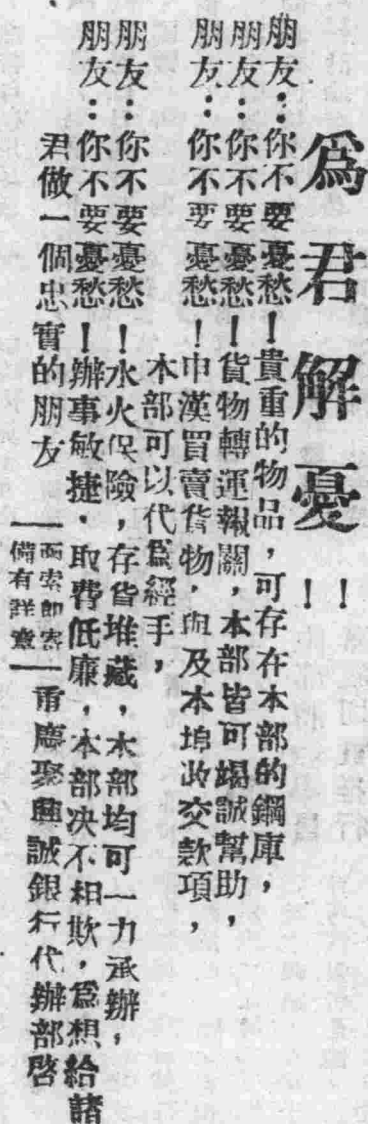 爲君解憂!!
朋友:你不要憂愁!貴重的物品,可存在本部的鋼庫,
朋友:你不要憂愁!貨物轉運報關,本部皆可竭誠幫助,
朋友:你不要憂愁!申漢買賣貨物,與及本埠收交欵項,
本部可以代爲經手,
朋友:你不要憂愁!水火保險,存貨堆藏,本部均可一力承辦,
朋友:你不要憂愁!辦事敏捷,取費低廉,本部决不相欺,爲想給諸
君做一個忠實的朋友
備有詳章
函索即寄
重慶聚興誠銀行代辦部啓